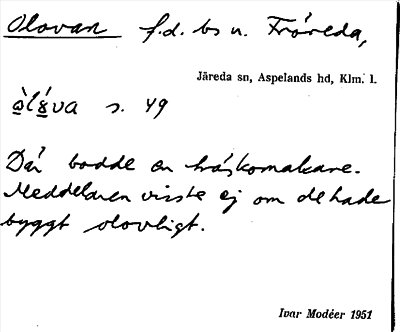 Olovan f.d. bs u. Fröreda,
Järeda sn, Aspelands hd, Klm. l.
s. 49
Där bodde en träskomakare.
Meddelaren visste ej om de hade
byggt olovligt.
Ivar Modéer 1951